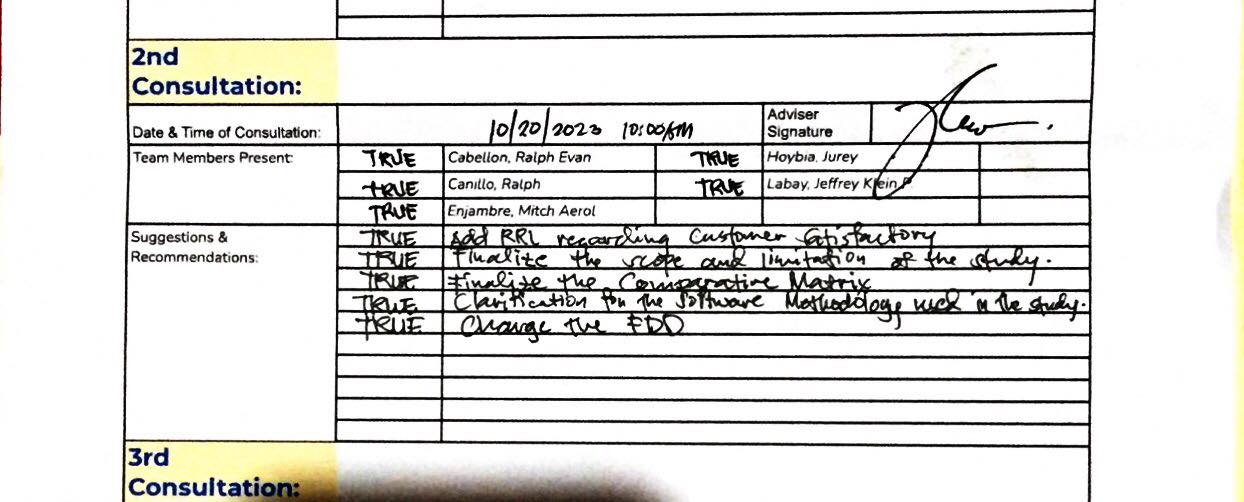 2nd
Consultation:
Date & Time of Consultation: 10/20/2023 10:00AM Adviser
Signature
Team Members Present: TRUE Cabellon, Ralph Evan TRUE Hoybia, Jurey
TRUE Canillo, Ralph TRUE Labay, Jeffrey Klein P.
TRUE Enjambre, Mitch Aerol
Suggestions &
Recommendations:
TRUE Add RRL regarding Customer Satisfactory
TRUE Finalize the scope and limitation of the study.
TRUE Finalize the Comparative Matrix
TRUE Clarification for the Software Methodology used in the study.
TRUE Change the FDD
3rd
Consultation: